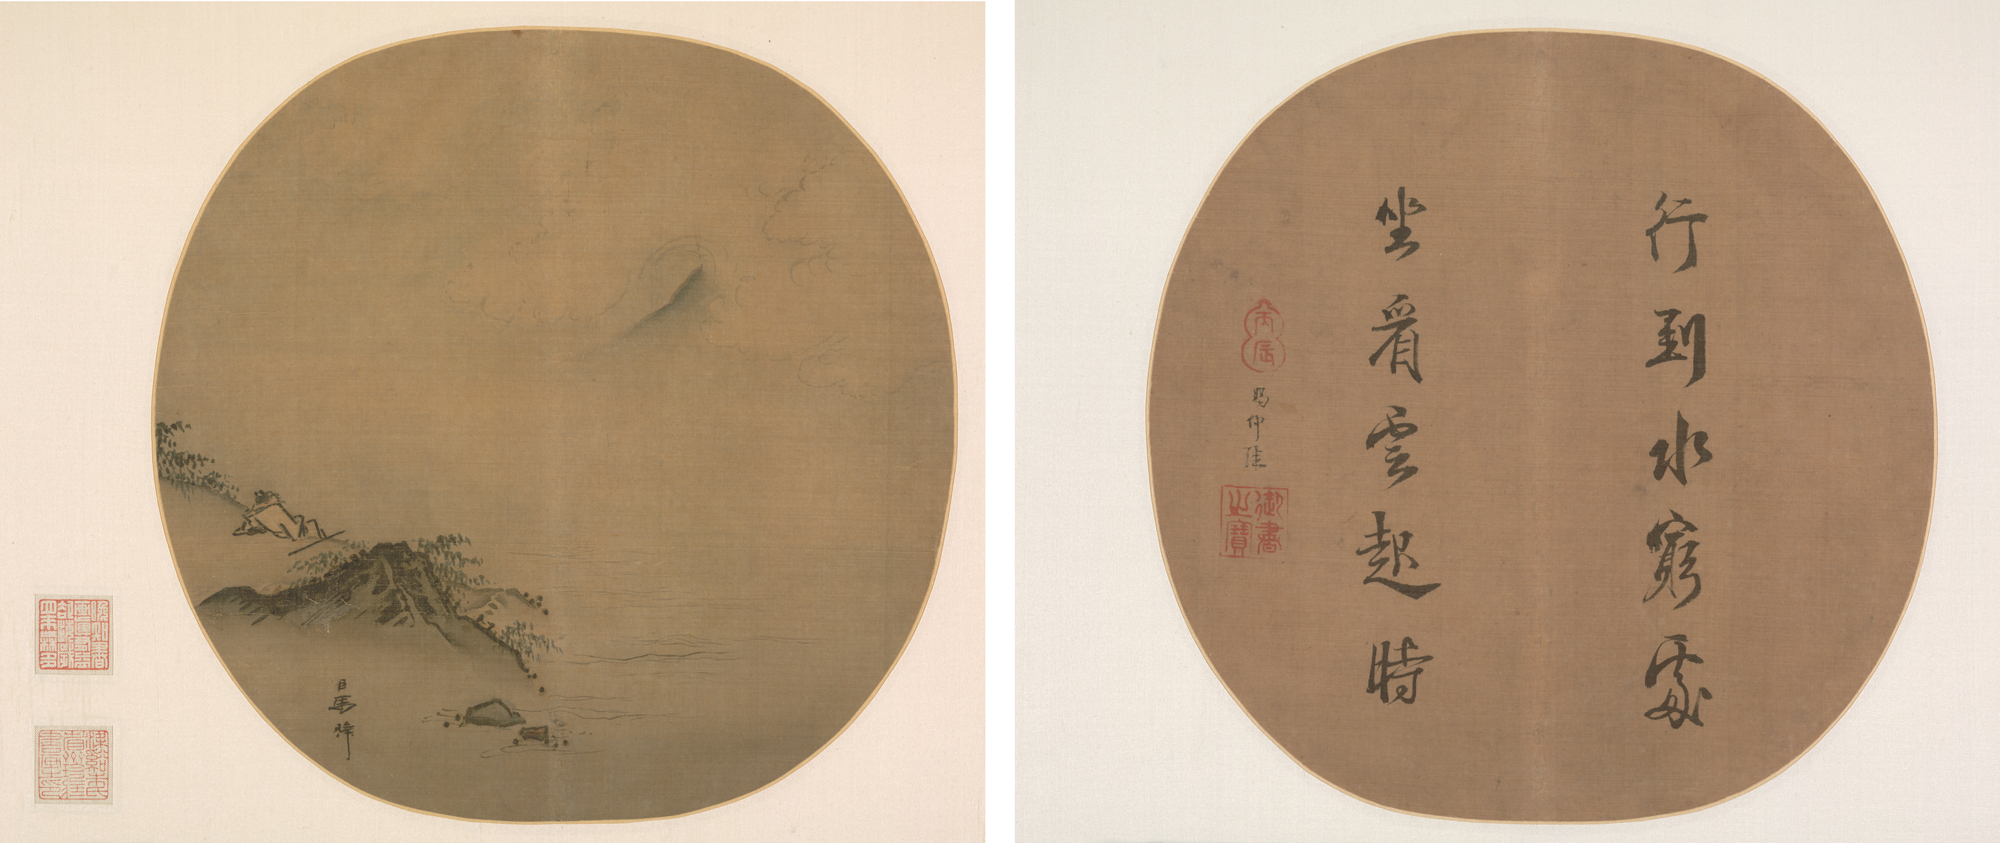 臣馬麟
行到水窮處
坐看雲起時
丙辰
賜仲
御書之寶